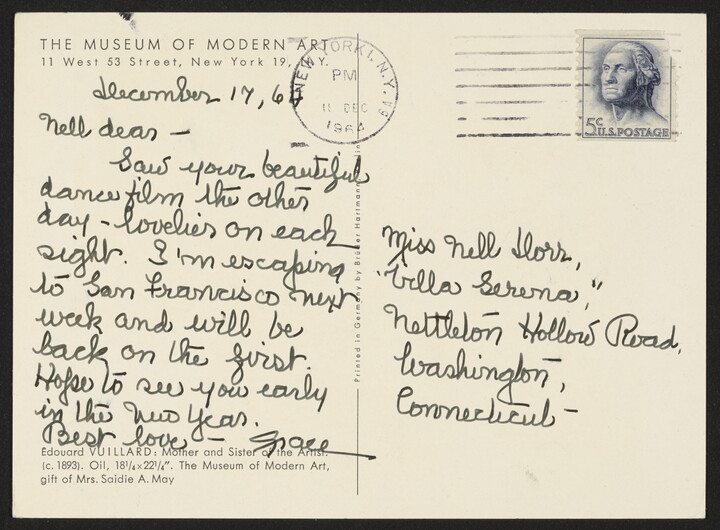 THE MUSEUM OF MODERN ART
11 West 53 Street, New York 19, N.Y.
December 17, 64
Nell dear —
Saw your beautiful
dance film the other
day - lovelies on each
sight. I'm escaping
to San Francisco next
week and will be
back on the first.
Hope to see you early
in the New Year.
Best love — Grace
Edouard VUILLARD: Mother and Sister of the Artist.
(c. 1893). Oil, 18¼ × 22¼". The Museum of Modern Art,
gift of Mrs. Saidie A. May
Printed in Germany by Brüder Hartmann in
NEW YORK 1, N.Y.
PM
11 DEC
1964
5c
U.S. POSTAGE
Miss Nell Dorr,
"Villa Serena,"
Nettleton Hollow Road,
Washington,
Connecticut —